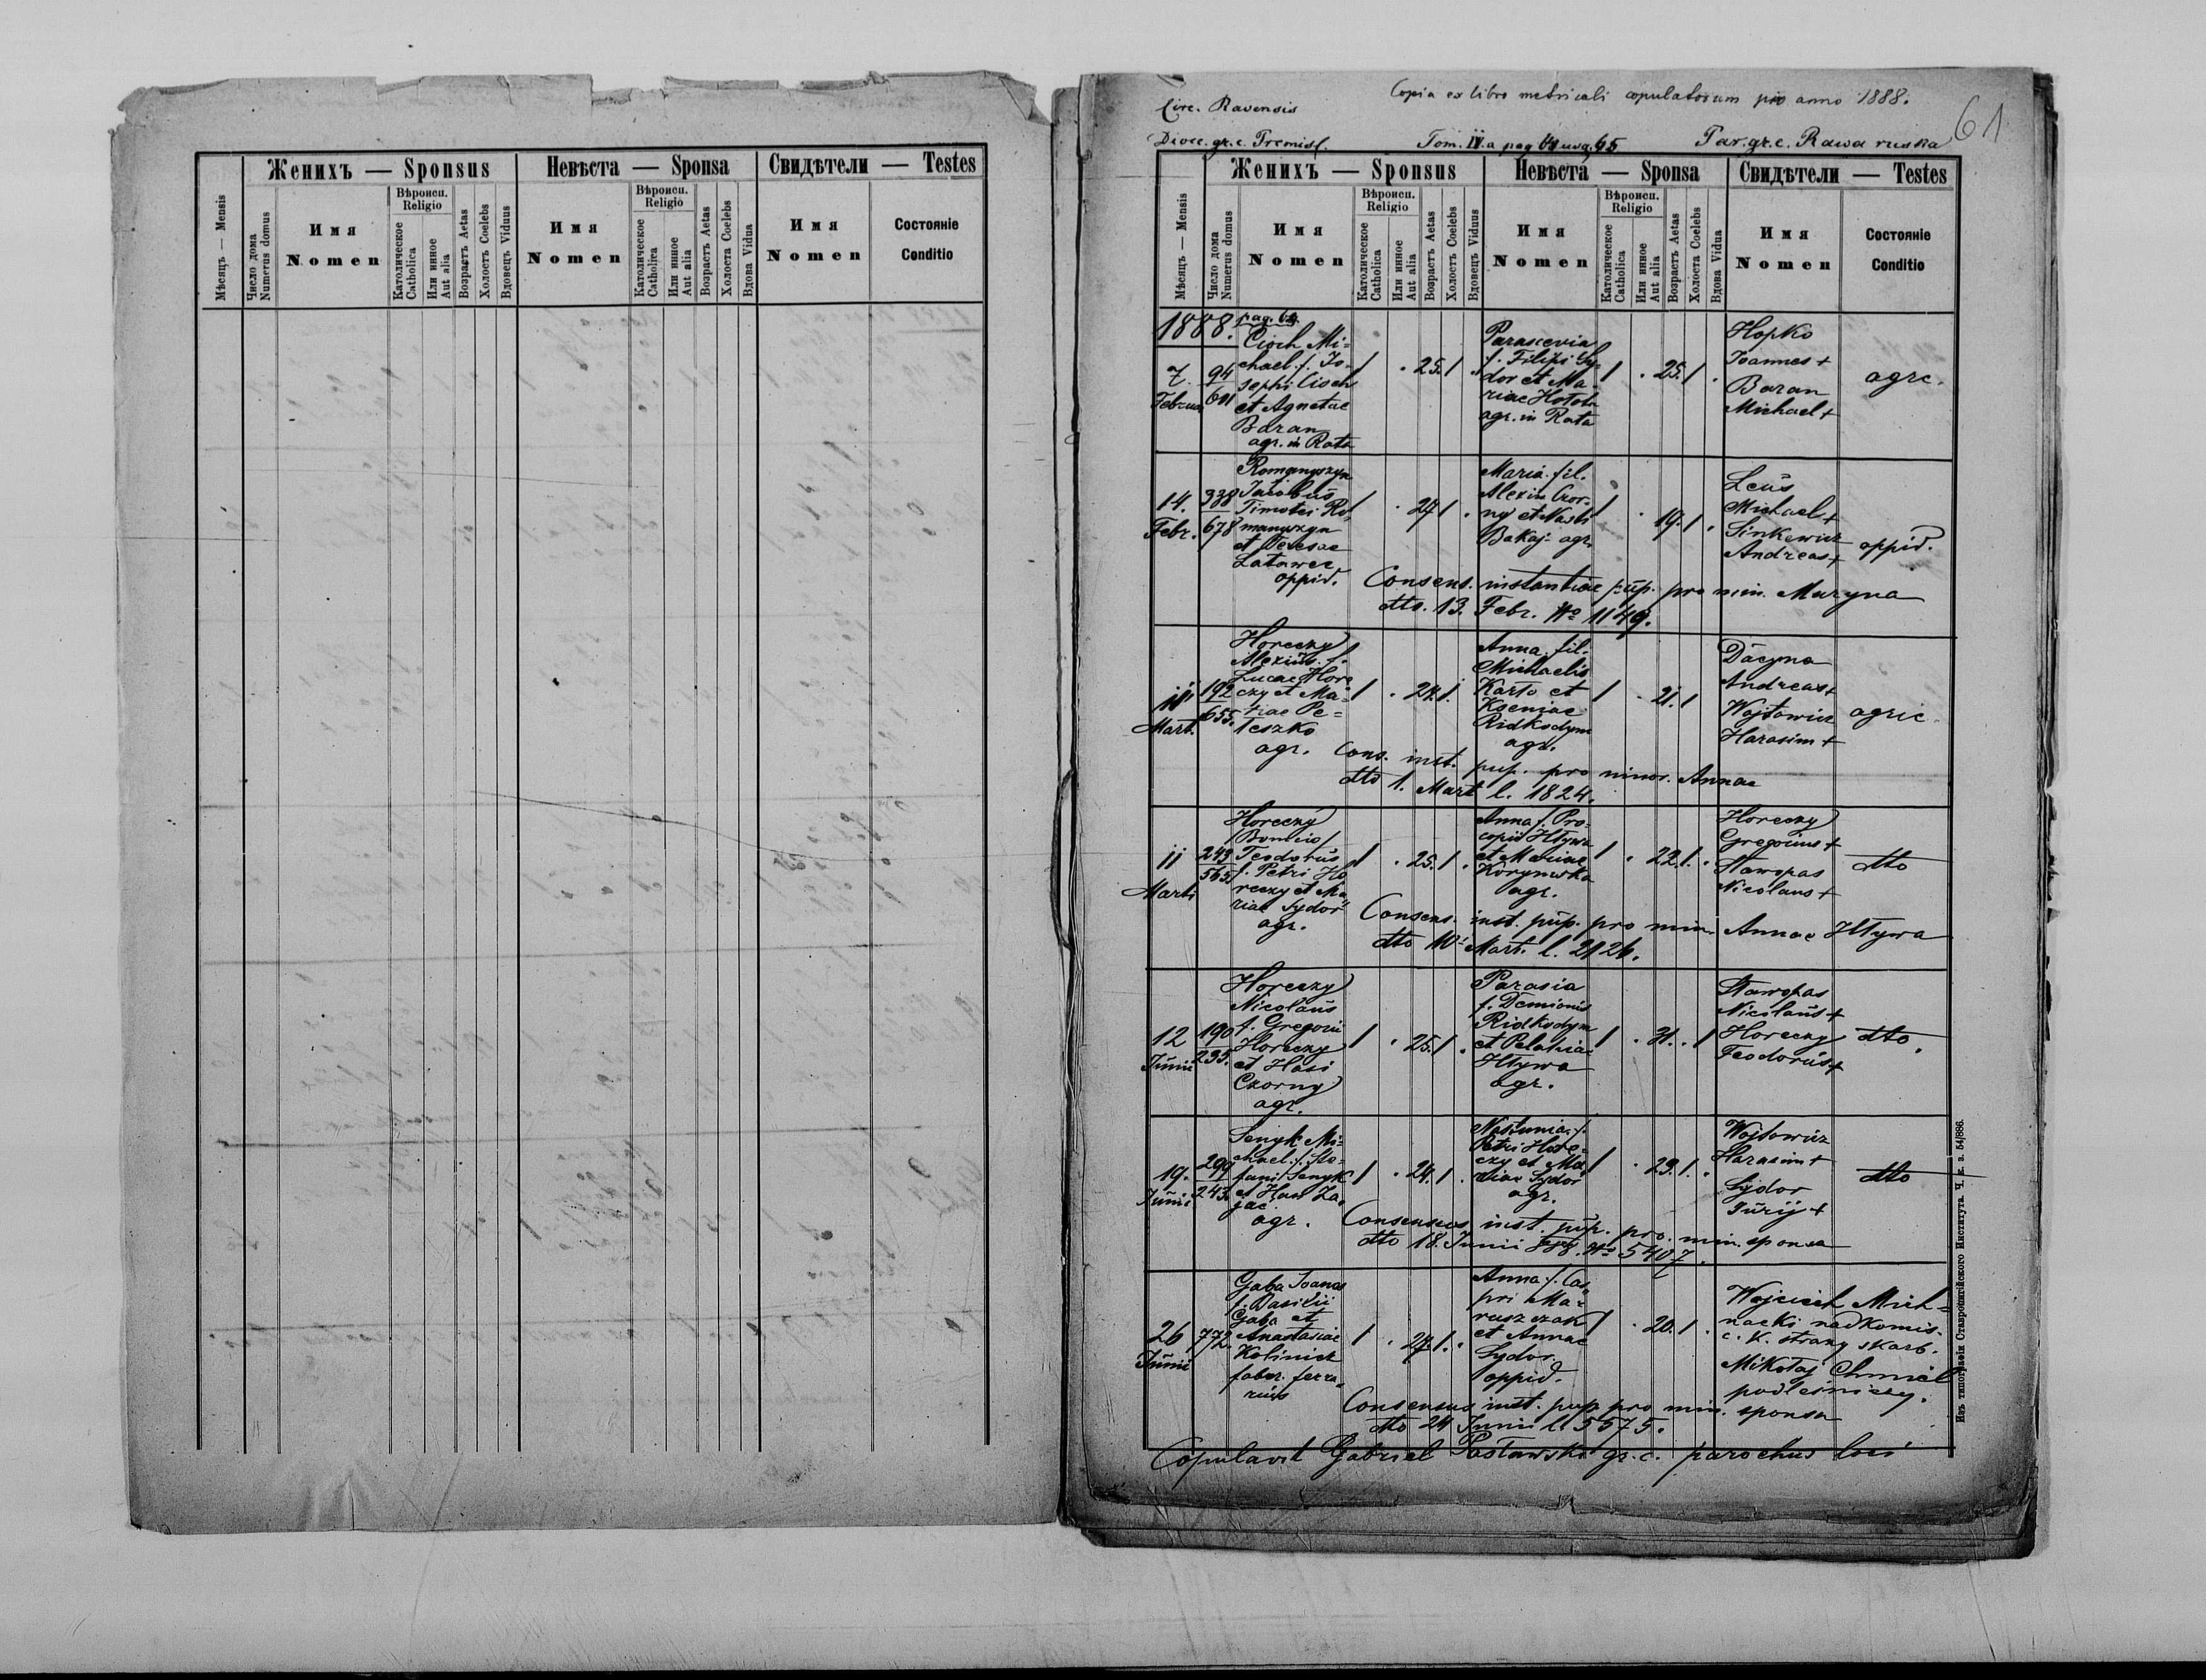 Женихъ — Sponsus
Невѣста — Sponsa
Свидѣтели — Testes
Мѣсяцъ — Mensis
Число дома
Numerus domus
Имя
Nomen
Вѣроисп.
Religio
Католическое
Catholica
Или инное
Aut alia
Возрастъ Aetas
Холостъ Coelebs
Вдовецъ Viduus
Имя
Nomen
Вѣроисп.
Religio
Католическое
Catholica
Или инное
Aut alia
Возрастъ Aetas
Холоста Coelebs
Вдова Vidua
Имя
Nomen
Состояніе
Conditio
Copia ex libro metricali copulatorum pro anno 1888.
61
Circ. Ravensis
Dioec. gr. c. Premisl.
Tom. IV. a pag 64 usq. 65
Par. gr. c. Rawa ruska
Женихъ — Sponsus
Невѣста — Sponsa
Свидѣтели — Testes
Мѣсяцъ — Mensis
Число дома
Numerus domus
Имя
Nomen
Вѣроисп.
Religio
Католическое
Catholica
Или инное
Aut alia
Возрастъ Aetas
Холостъ Coelebs
Вдовецъ Viduus
Имя
Nomen
Вѣроисп.
Religio
Католическое
Catholica
Или инное
Aut alia
Возрастъ Aetas
Холоста Coelebs
Вдова Vidua
Имя
Nomen
Состояніе
Conditio
1888.
pag. 64.
7.
Februar
94
611
Cioch Mi=
chael f. Jo-
sephi Cioch
et Agnetae
Baran
agr. in Rata
1 . 25. 1 .
Parascevia
f. Filipi Sy-
dor et Ma-
riae Hotoh
agr. in Rata
1 . 25. 1 .
Hopko
Joannes +
Baran
Michael +
agrc.
14.
Febr.
338
678
Romanyszyn
Jacobus
Timotei Ro-
manyszyn
et Teresae
Latawec
oppid.
1 . 24 1 .
Maria fil.
Alexii Czor-
ny et Nasti
Bakaj agr.
1 . 19. 1 .
Leus
Michael +
Sinkewicz
Andreas +
oppid.
Consens. instantiae pup. pro min. Maryna
dto. 13. Febr. No 1149.
11
Mart.
192
655.
Horeczy
Alexius f.
Lucae Hore
czy et Ma-
riae Pe=
teszko
agr.
1 . 24. 1.
Anna fil.
Michaelis
Karto et
Kseniae
Ridkodym
agr.
1 . 21. 1
Dacyna
Andreas +
Wojtowicz
Harasim +
agric.
Cons. inst. pup. pro minor. Annae
dto 1. Mart l. 1824.
11
Marti
243
565.
Horeczy
Teodorus
f. Petri Ho
reczy et Ma-
riae Sydor
agr.
1 . 25. 1 .
Anna f. Pro-
copii Htywa
et Mariae
agr.
1 . 22. 1. .
Horeczy
Gregorius +
Stawopas
Nicolaus +
dto
Consens. inst. pup. pro min. Annae Htywa
dto 10. Mart. l. 2126.
12
Junii
190
235.
Horeczy
Nicolaus
f. Gregorii
Horeczy
et Hasi
Czorny
agr.
1 . 25. 1 .
Parasia
f. Demionis
Ridkodym
et Pelahiae
Htywa
agr.
1 . 31. . 1
Stawopas
Nicolaus +
Horeczy
Teodorus +
dto.
19.
Junii
299
243.
Senyk Mi=
chael f. Ste-
fani Senyk
et Hani Za-
jac
agr.
1 . 24. 1 .
Nastunia f.
Petri Hore-
czy et Ma-
riae Sydor
agr.
1 . 23. 1. .
Wojtowicz
Harasim +
Sydor
Jurij +
dto
Consensus inst. pup. pro. min. sponsa
dto 18. Junii No 5407.
26
Junii
772.
Gaba Joanes
f. Basilii
Gaba et
Anastasiae
Kolinicz
faber. ferra-
rius
1 . 24. 1. .
Anna f. Cas-
pri Ma-
ruszczak
et Annae
Sydor.
oppid.
1 . 20. 1 .
Wojcieh Mich-
nacki nadkomis.
c. k. strazy skarb.
Mikołaj Chmiel
podlesniczy.
Consensus inst. pup pro min. sponsa
dto 24 Junii l. 5575.
Copulavit Gabriel Pasławski gr. c. parochus loci
Изъ типографіи Ставропигійского Института. Ч. к. з. 54/886.